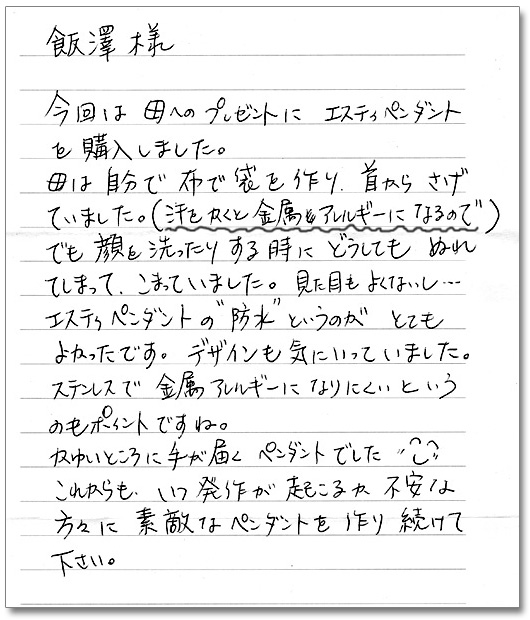 飯澤 様
今回は 母への プレゼントに エスティペンダント
を 購入しました。
母は 自分で 布で 袋を 作り、首から さげ
ていました。(汗をかくと 金属もアレルギーに なるので)
でも 顔を 洗ったり する 時に どうしても ぬれ
てしまって、こまっていました。見た目も よくないし…
エスティペンダントの "防水" というのが とても
よかったです。デザインも 気にいっていました。
ステンレスで 金属アレルギーに なりにくい という
のもポイントですね。
かゆいところに 手が 届く ペンダントでした
これからも、いつ 発作が 起こるか 不安な
方々に 素敵な ペンダントを 作り 続けて
下さい。